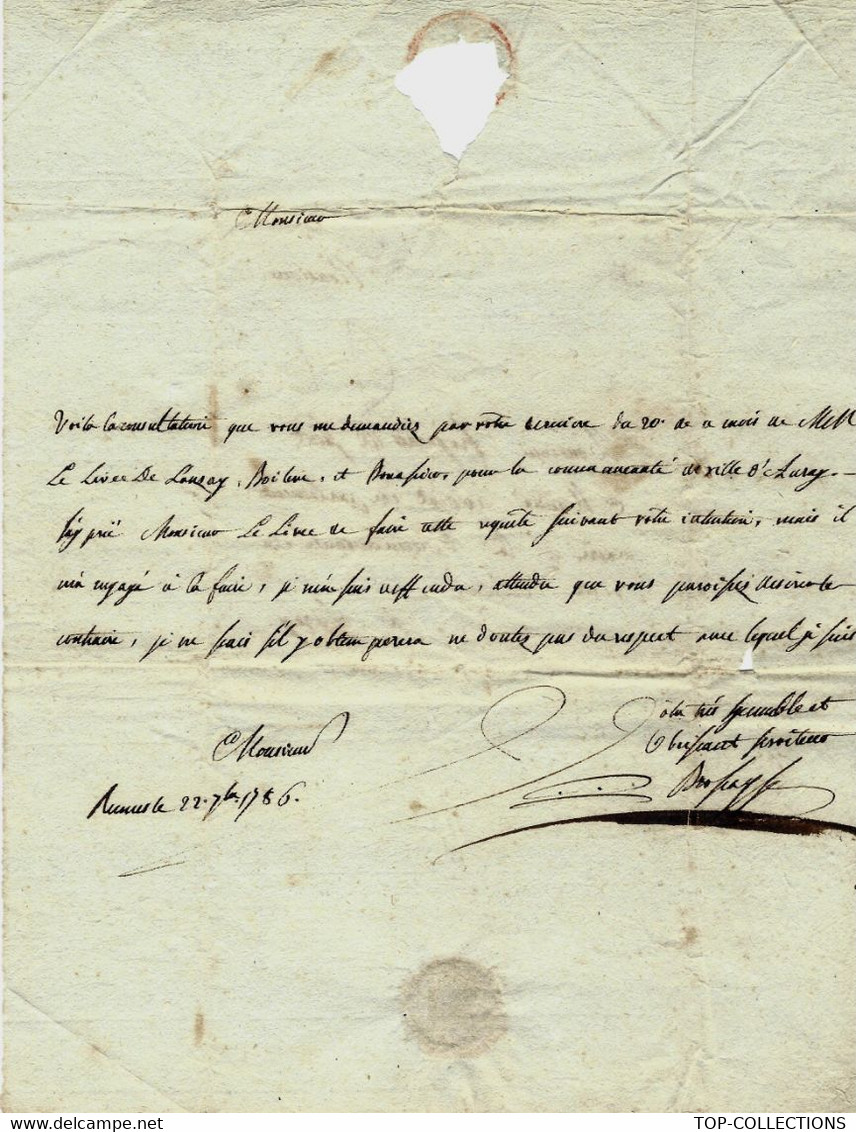 Monsieur
Voila la consultation que vous me demandiez par votre derniere du 20. de ce mois de MM
Le Livec De Lauzay, Boileve, et Bonassieu, pour la communauté de ville d'Auray. —
j'ay prié Monsieur Le Livec de faire cette requête suivant votre intention, mais il
m'a engagé à la faire, je m'en suis deffendu, attendu que vous paroissez desirer le
contraire, je ne scais s'il y obtemperera ne doutez pas du respect avec lequel je suis
Monsieur
Votre très humble et
Obeissant serviteur
Rennes le 22. 7bre 1786.
TOP-COLLECTIONS